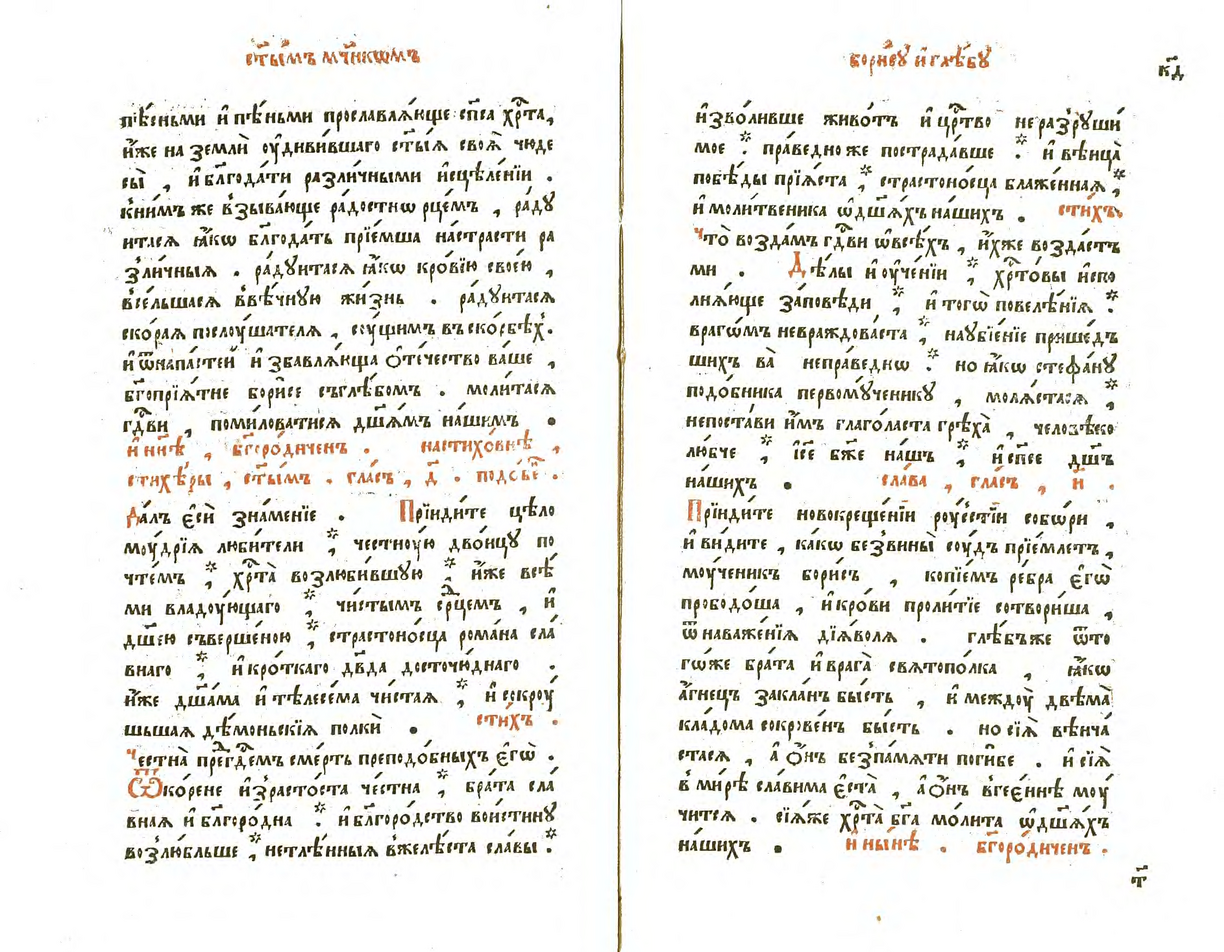 ст҃ы́мъ мч҃нкѡмъ
пѣ́сньми и҆ пѣ́ньми прославлѧ́юще сп҃са хрⷭ҇та̀,
и҆́же на землѝ оу҆диви́вшаго ст҃ы́ѧ своѧ̀ чюде
сы̀ , и҆ бл҃года́ти разли́чными и҆сцѣле́нїи .
кни́мъ же взыва́юще ра́достнѡ рце́мъ , ра́дꙋ
итасѧ ꙗ҆́кѡ бл҃года́ть прїе́мша на́страсти ра
зли́чныѧ . ра́дꙋитасѧ ꙗ҆́кѡ кро́вїю свое́ю ,
всéльшасѧ в вѣ́чнꙋю жи́знь . ра́дꙋитасѧ
ско́раѧ послꙋ́шателѧ , сꙋ́щимъ въ ско́рбѣх̾.
и҆ ѿнапа́стей и҆збавлѧ́юща ѻ҆те́чество ва́ше ,
бг҃опрїѧ́тне бори́се съглѣ́бомъ . моли́тасѧ
гдⷭ҇ви , поми́ловатисѧ дш҃а́мъ на́шимъ .
и҆ ны́нѣ , бг҃оро́диченъ . настихо́внѣ ,
стихѣ́ры , ст҃ы́мъ . гла́съ , д҃ . подо́бе .
Да́лъ є҆сѝ зна́менїе . Прїиди́те цѣ́ло
мꙋ́дрїѧ люби́тели ⁘ честнꙋ́ю двои́цꙋ по
чте́мъ ⁘ хрⷭ҇та̀ возлюби́вшꙋю ⁘ и҆́же всѣ
ми владꙋ́ющаго ⁘ чи́стымъ срⷣцемъ , и҆
дш҃е́ю съверше́ною ⁘ страстоно́сца рома́на сла́
внаго ⁘ и҆ кро́ткаго дв҃да досточю́днаго .
и҆́же дш҃а́ма и҆ тѣлесе́ма чи́стаѧ ⁘ и҆ сокрꙋ
шьшаѧ дѣ́моньскїѧ полкѝ . сти́хъ .
Честна̀ пре́гдⷭ҇емъ сме́рть преподо́бныхъ є҆гѡ̀ .
Ѿкорене и҆зрасто́ста че́стна ⁘ бра́та сла́
внаѧ и҆ бл҃горо́дна ⁘ и҆ бл҃горо́дство вои́стинꙋ
возлю́бльше ⁘ нетлѣ́нныѧ вжелѣ́ста сла́вы ⁘
бори́сꙋ и҆ глѣ́бꙋ
к҃д
и҆зво́ливше живо́тъ и҆ црⷭ҇тво неразрꙋши́
мое ⁘ пра́ведно же пострада́вше ⁘ и҆ вѣнца̀
побѣ́ды прїѧ́ста ⁘ страстоно́сца блаже́ннаѧ ⁘
и҆ моли́твеника ѡ҆дш҃а́хъ на́шихъ . сти́хъ
Что̀ возда́мъ гдⷭ҇ви ѡ҆всѣ́хъ , и҆́хже возда́стъ
ми . Дѣ́лы и҆ оу҆че́нїи ⁘ хрⷭ҇то́вы и҆спо
лнѧ́юще за́повѣди ⁘ и҆ тогѡ̀ повелѣ́нїѧ ⁘
врагѡ́мъ невраждова́ста ⁘ наꙋбїе́нїе прише́дъ
шихъ ва̀ непра́веднѡ ⁘ но ꙗ҆́кѡ стефа́нꙋ
подо́бника первомꙋ́ченикꙋ , молѧ́стасѧ ⁘
непоста́ви и҆́мъ глаго́ласта грѣха̀ , человѣ́ко
лю́бче ⁘ і҆и҃се бж҃е на́шъ ⁘ и҆ сп҃се дш҃ъ
на́шихъ . сла́ва , гла́съ , и҃ .
Прїиди́те новокреще́нїи рꙋ́стїи собѡ́ри ,
и҆ ви́дите , ка́кѡ без̾вины̀ сꙋ́дъ прїе́млетъ ,
мꙋ́ченикъ бори́съ , копїе́мъ ре́бра є҆гѡ̀
прободо́ша , и҆ кро́ви проли́тїе сотвори́ша ,
ѿ наваже́нїѧ дїѧ́волѧ . глѣ́бъже ѿто
гѡ́же бра́та и҆ врага̀ свѧтопо́лка , ꙗ҆́кѡ
а҆́гнецъ закла́нъ бы́сть , и҆ междꙋ̀ двѣма̀
кла́дома сокрове́нъ бы́сть . но сїѧ̀ вѣнча́
стасѧ , а҆ ѻ҆́нъ безпа́мѧти поги́бе . и҆ сїѧ̀
в ми́рѣ сла́вима є҆ста̀ , а҆ ѻ҆́нъ в гее́ннѣ мꙋ́
читсѧ . сїѧ́же хрⷭ҇та̀ бг҃а моли́та ѡ҆дш҃а́хъ
на́шихъ . и҆ ны́нѣ . бг҃оро́диченъ .
т҃